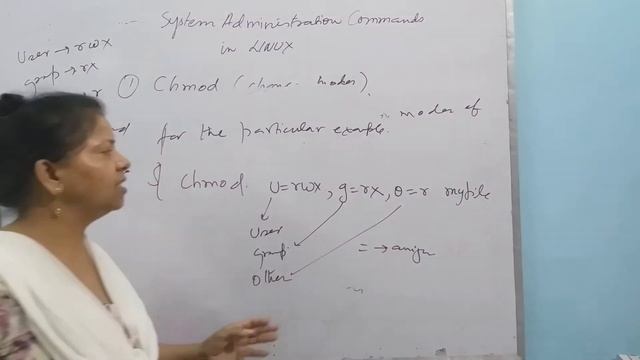 System Administration Commands
in LINUX
User → rwx
group → rx
r
① Chmod ( modes).
for the particular example. modes of
$ Chmod. u=rwx, g=rx, o=r myfile
User
group
Other
= → assign